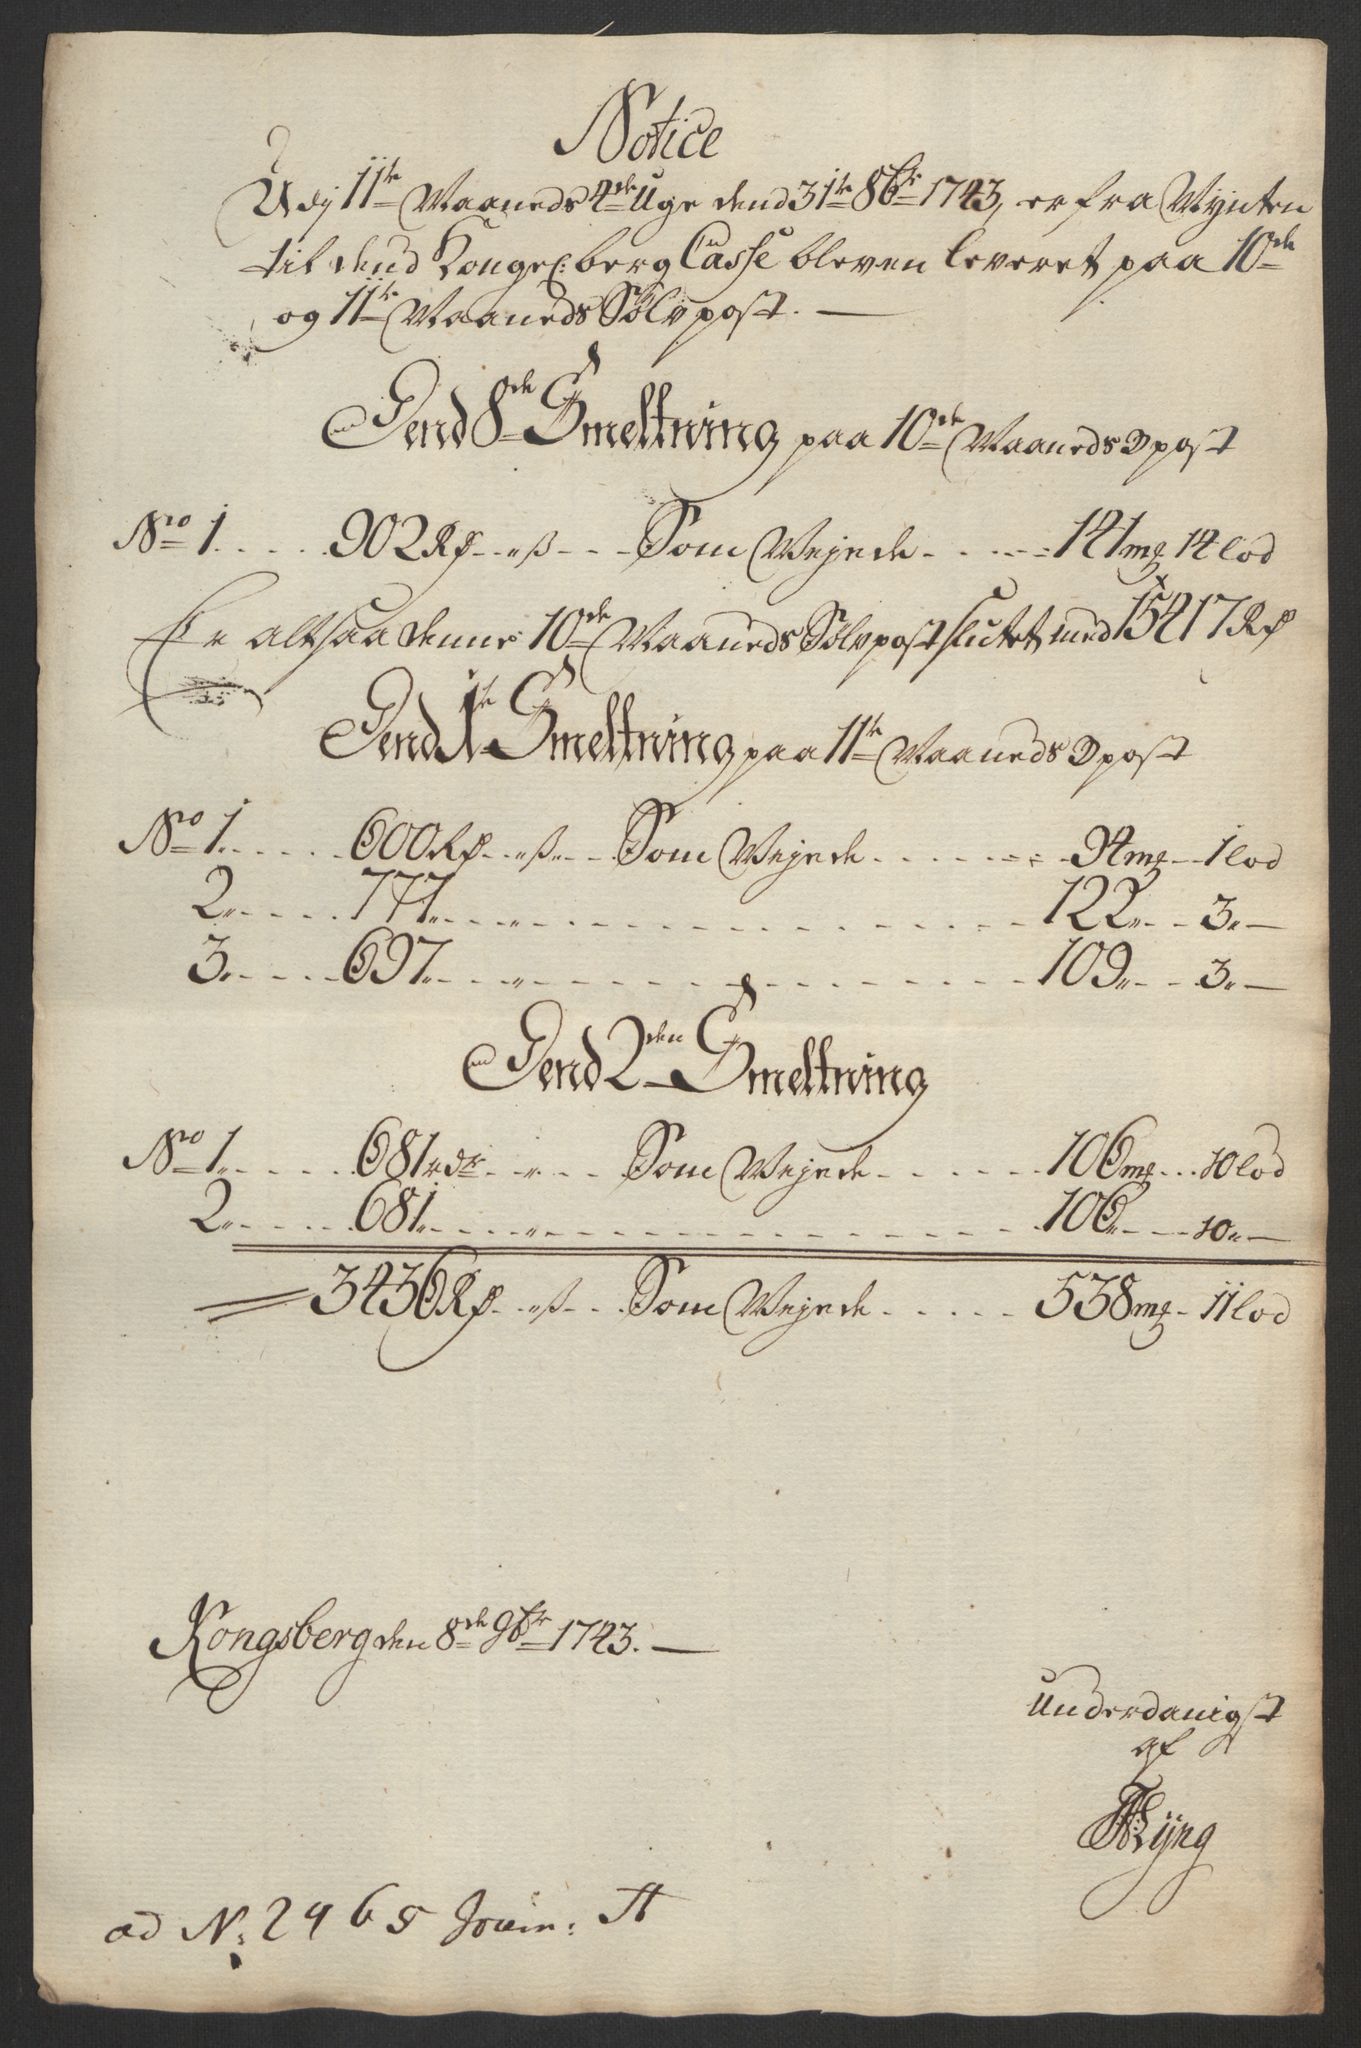 Notice
Udj 11te Maaneds 4de Uge dend 31te 8br 1743, er fra Mynten
til dend Kongel: berg Casse bleven leveret paa 10de
og 11te Maaneds Sølvpost. —
Dend 8de Smeltning paa 10de Maaneds post
No 1. . . . . . 902 Rd - „ ß - - - Som Vejede . . . . . - 141 mg 14 lod
Er altsaa denne 10de Maaneds Sølvpost slutet med 15417 Rd
Dend 1te Smeltning paa 11te Maaneds post
No 1. . . . . . 600 Rd - „ ß - - - Som Vejede . . . . . . . 94 mg - 1 lod
2 „ . . . . 777 „ - - - „ - - - - - - - - - 122 „ - - 3 „ —
3 „ . . . . 697 „ - - - „ - - - - - - - - - 109 „ - - 3 „ —
Dend 2den Smeltning
No 1 „ . . . . . 681 rdr - „ - - - Som Vejede - . . . . . 106 mg - - 10 lod
2 „ . . . . 681 „ - - - „ - - - - - - - - - 106 „ - - 10 „ —
3436 Rd - „ ß - - - Som Vejede . . . . . 538 mg - 11 lod
Kongsberg den 8de 9br 1743. —
Underdanigst
af
ad N: 2965 Jour: A